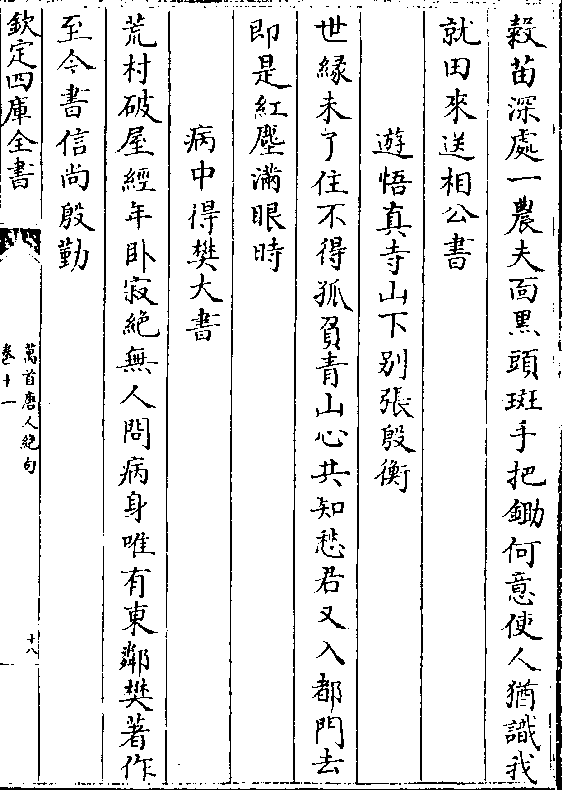 穀苗深處一農夫面黒頭斑手把鋤何意使人猶識我
就田來送相公書
遊悟真寺山下别張殷衡
世緣未了住不得孤負青山心共知愁君又入都門去
即是紅塵滿眼時
病中得樊大書
荒村破屋經年卧寂絶無人問病身唯有東鄰樊著作
至今書信尚殷勤
欽定四庫全書
萬首唐人絶句
卷十一
十八